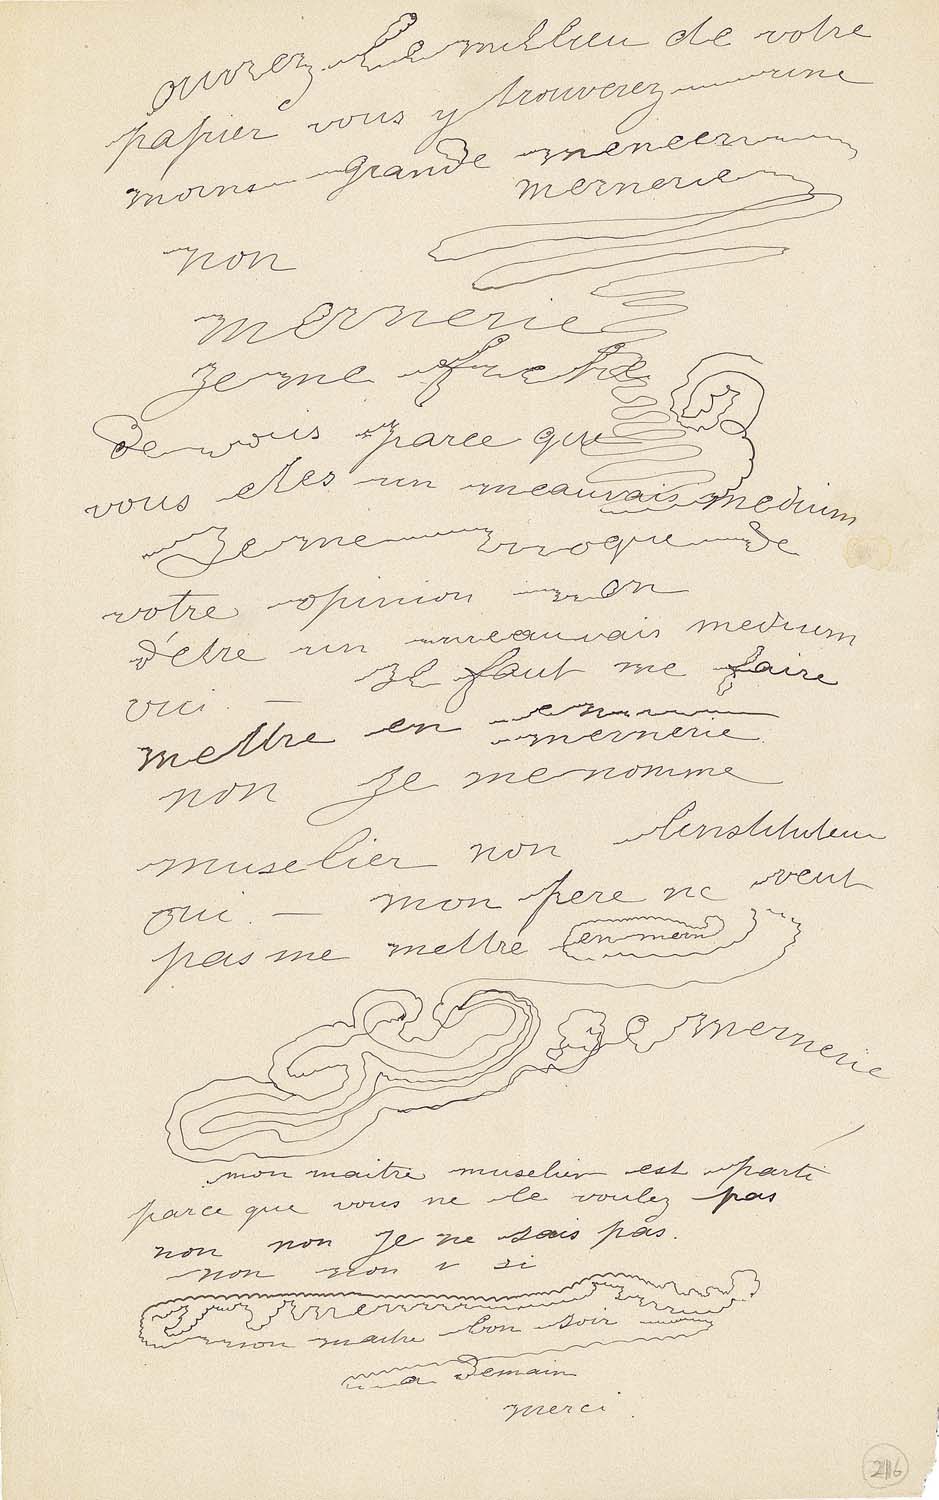 ouvrez le milieu de votre
papier vous y trouverez une
moins grande meneer
mernerie
non
mernerie
je me fiche
de vous parce que
vous etes un meauvais medium
Je me moque de
votre opinion non
d'etre un meauvais medium
oui — Il faut me faire
mettre en
mernerie
non Je me nomme
muselier non l'enstituteur
oui — mon pere ne veut
pas me mettre en mern
mernerie
mon maitre muselier est parti
parce que vous ne le voulez pas
non non Je ne sais pas.
non non si
mon maitre bon soir
a Demain
merci
216